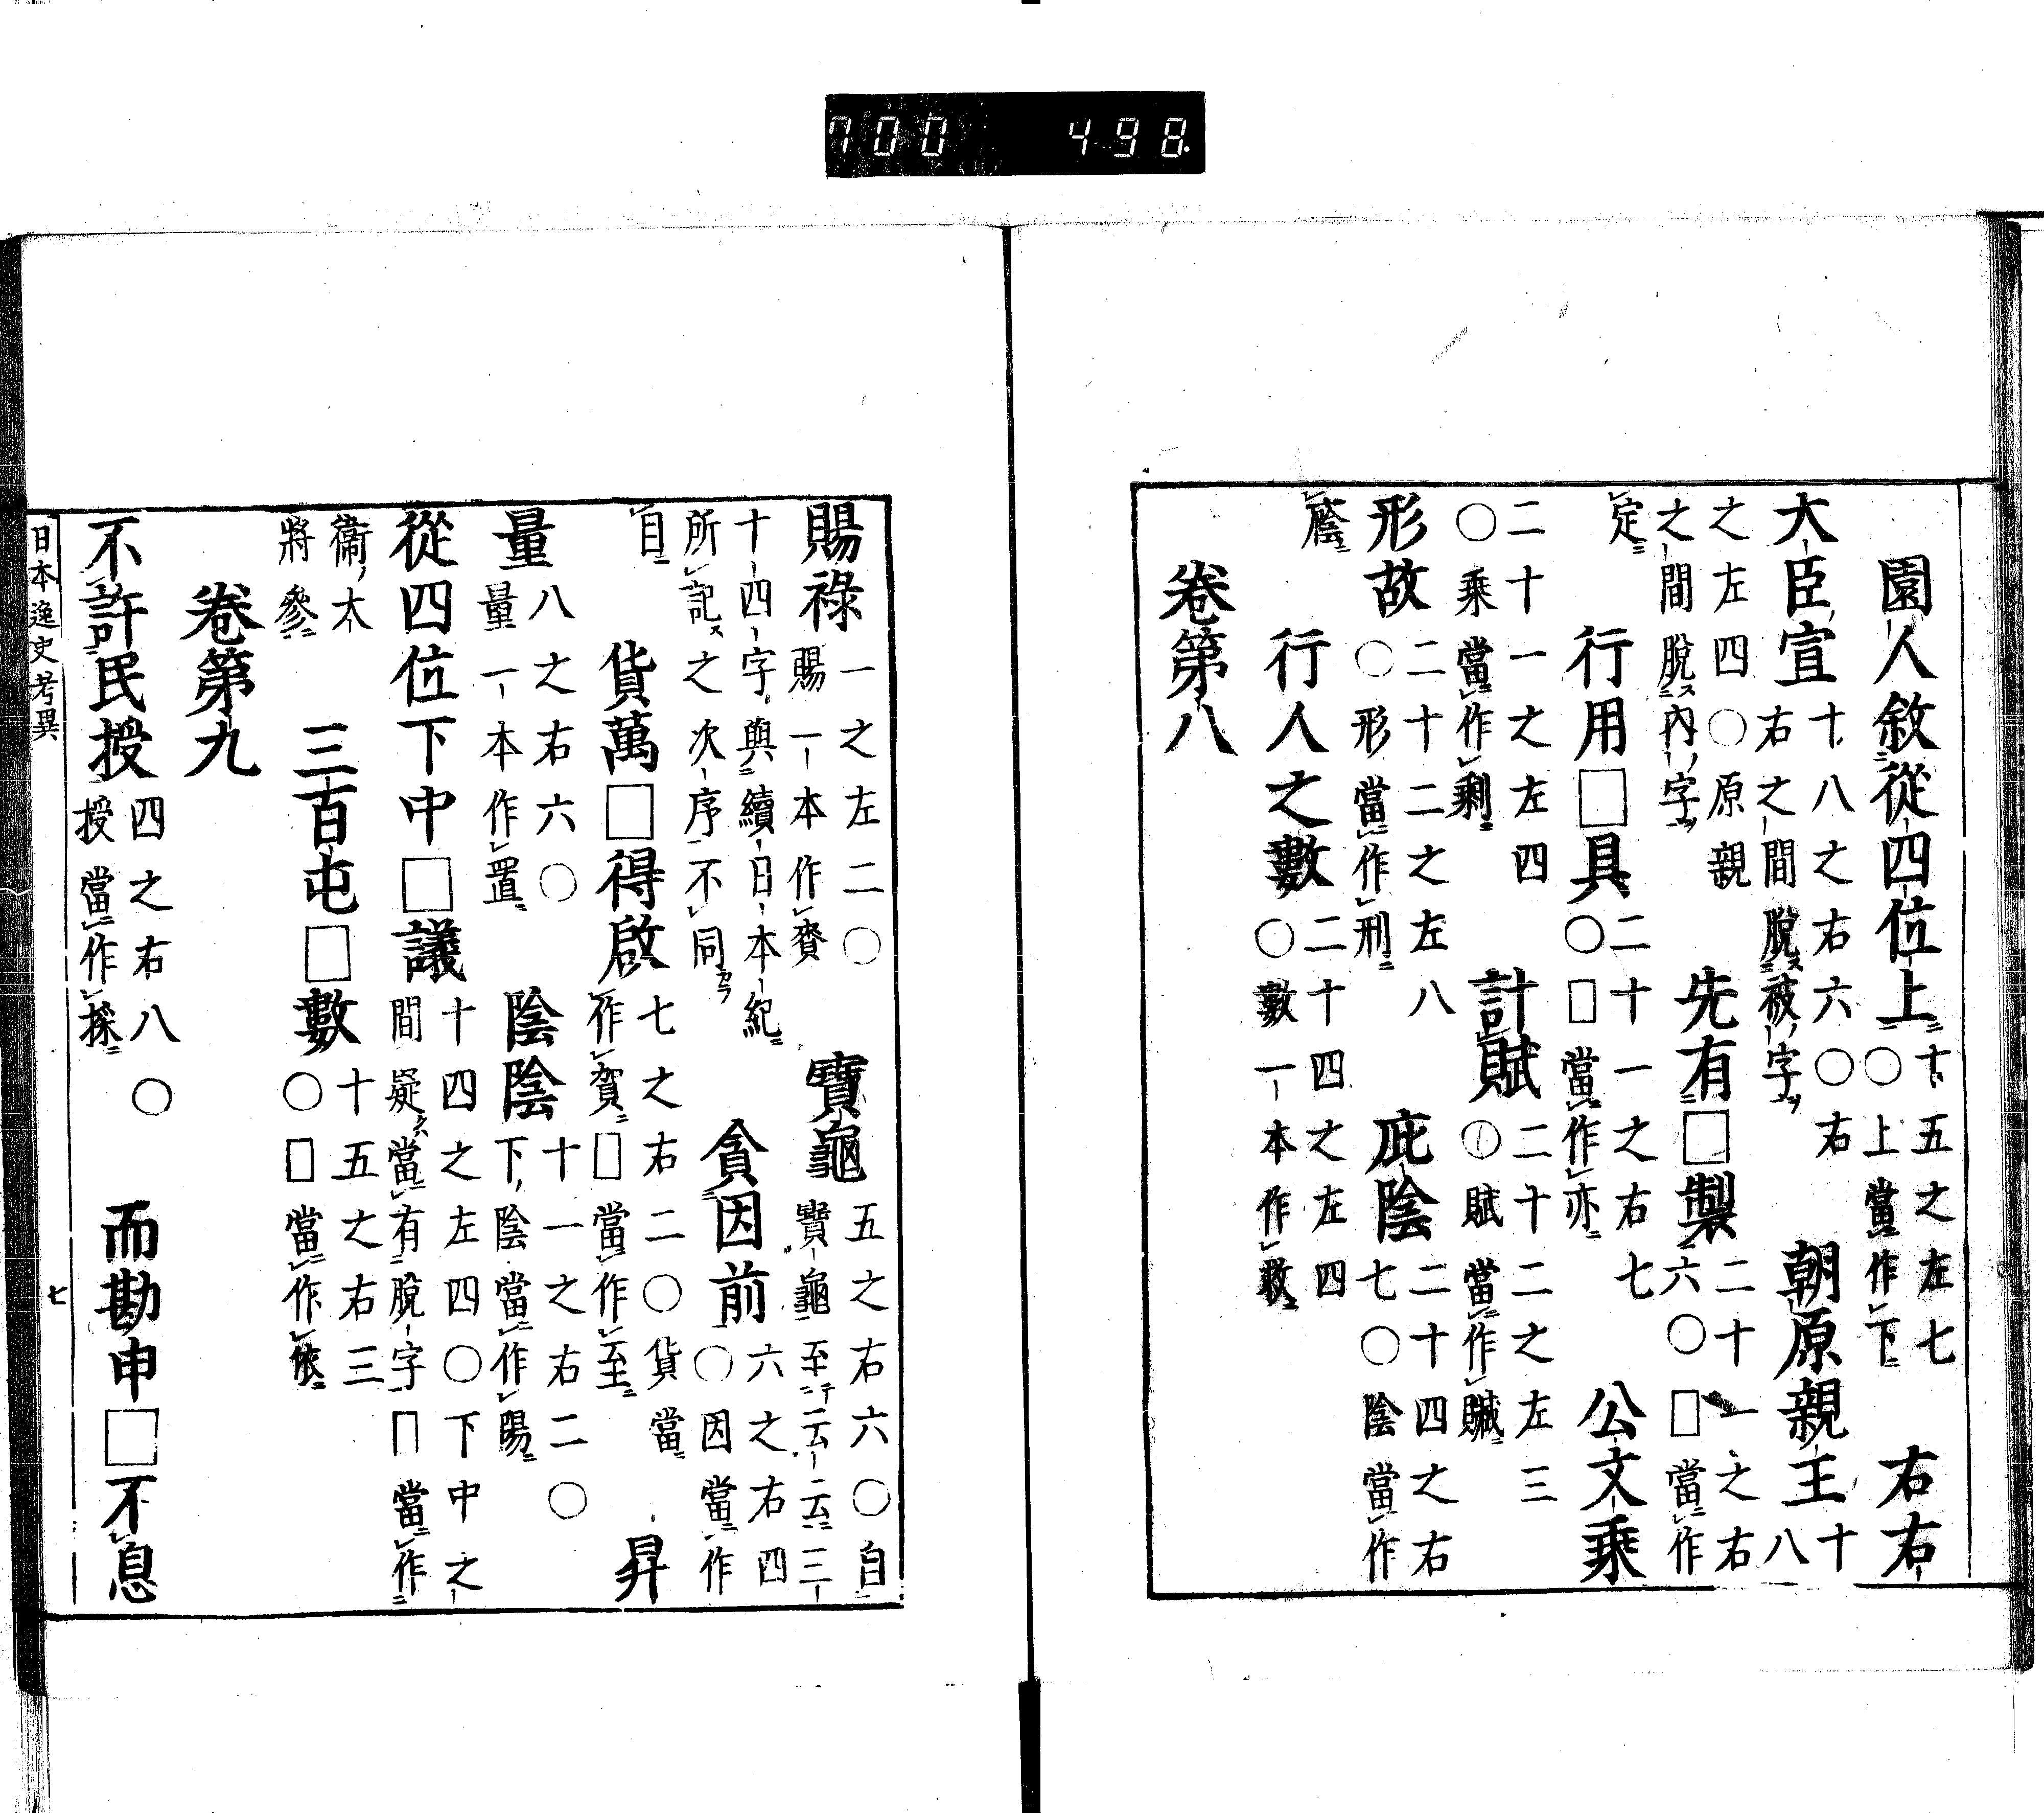 700 498
園人敘從四位上 十五之左七○上當作下 右右
大臣宣 十八之右六○右右之間脫被字 朝原親王 十八
之左四○原親之間脫內字 先有□製 二十一之右六○□當作
定 行用□具 二十一之右七○□當作亦 公文乘
二十一之左四○乘當作剩 計賦 二十二之左三○賦當作贓
形故 二十二之左八○形當作刑 庇陰 二十四之右七○陰當作
廕 行人之數 二十四之左四○數一本作救
卷第八
賜祿 一之左二○賜一本作賚 寶龜 五之右六○自寶龜至云云三
十四字與續日本紀所記之次序不同 貪因前 六之右四○因當作
自 貨萬□得啟 七之右二○貨當作賀□當作至 昇
量 八之右六○量一本作置 陰陰 十一之右二○下陰當作陽
從四位下中□議 十四之左四○下中之間疑當有脫字□當作
衞太將參 三百屯□數 十五之右三○□當作依
卷第九
不許民授 四之右八○授當作採 而勘申□不息
日本逸史考異 七